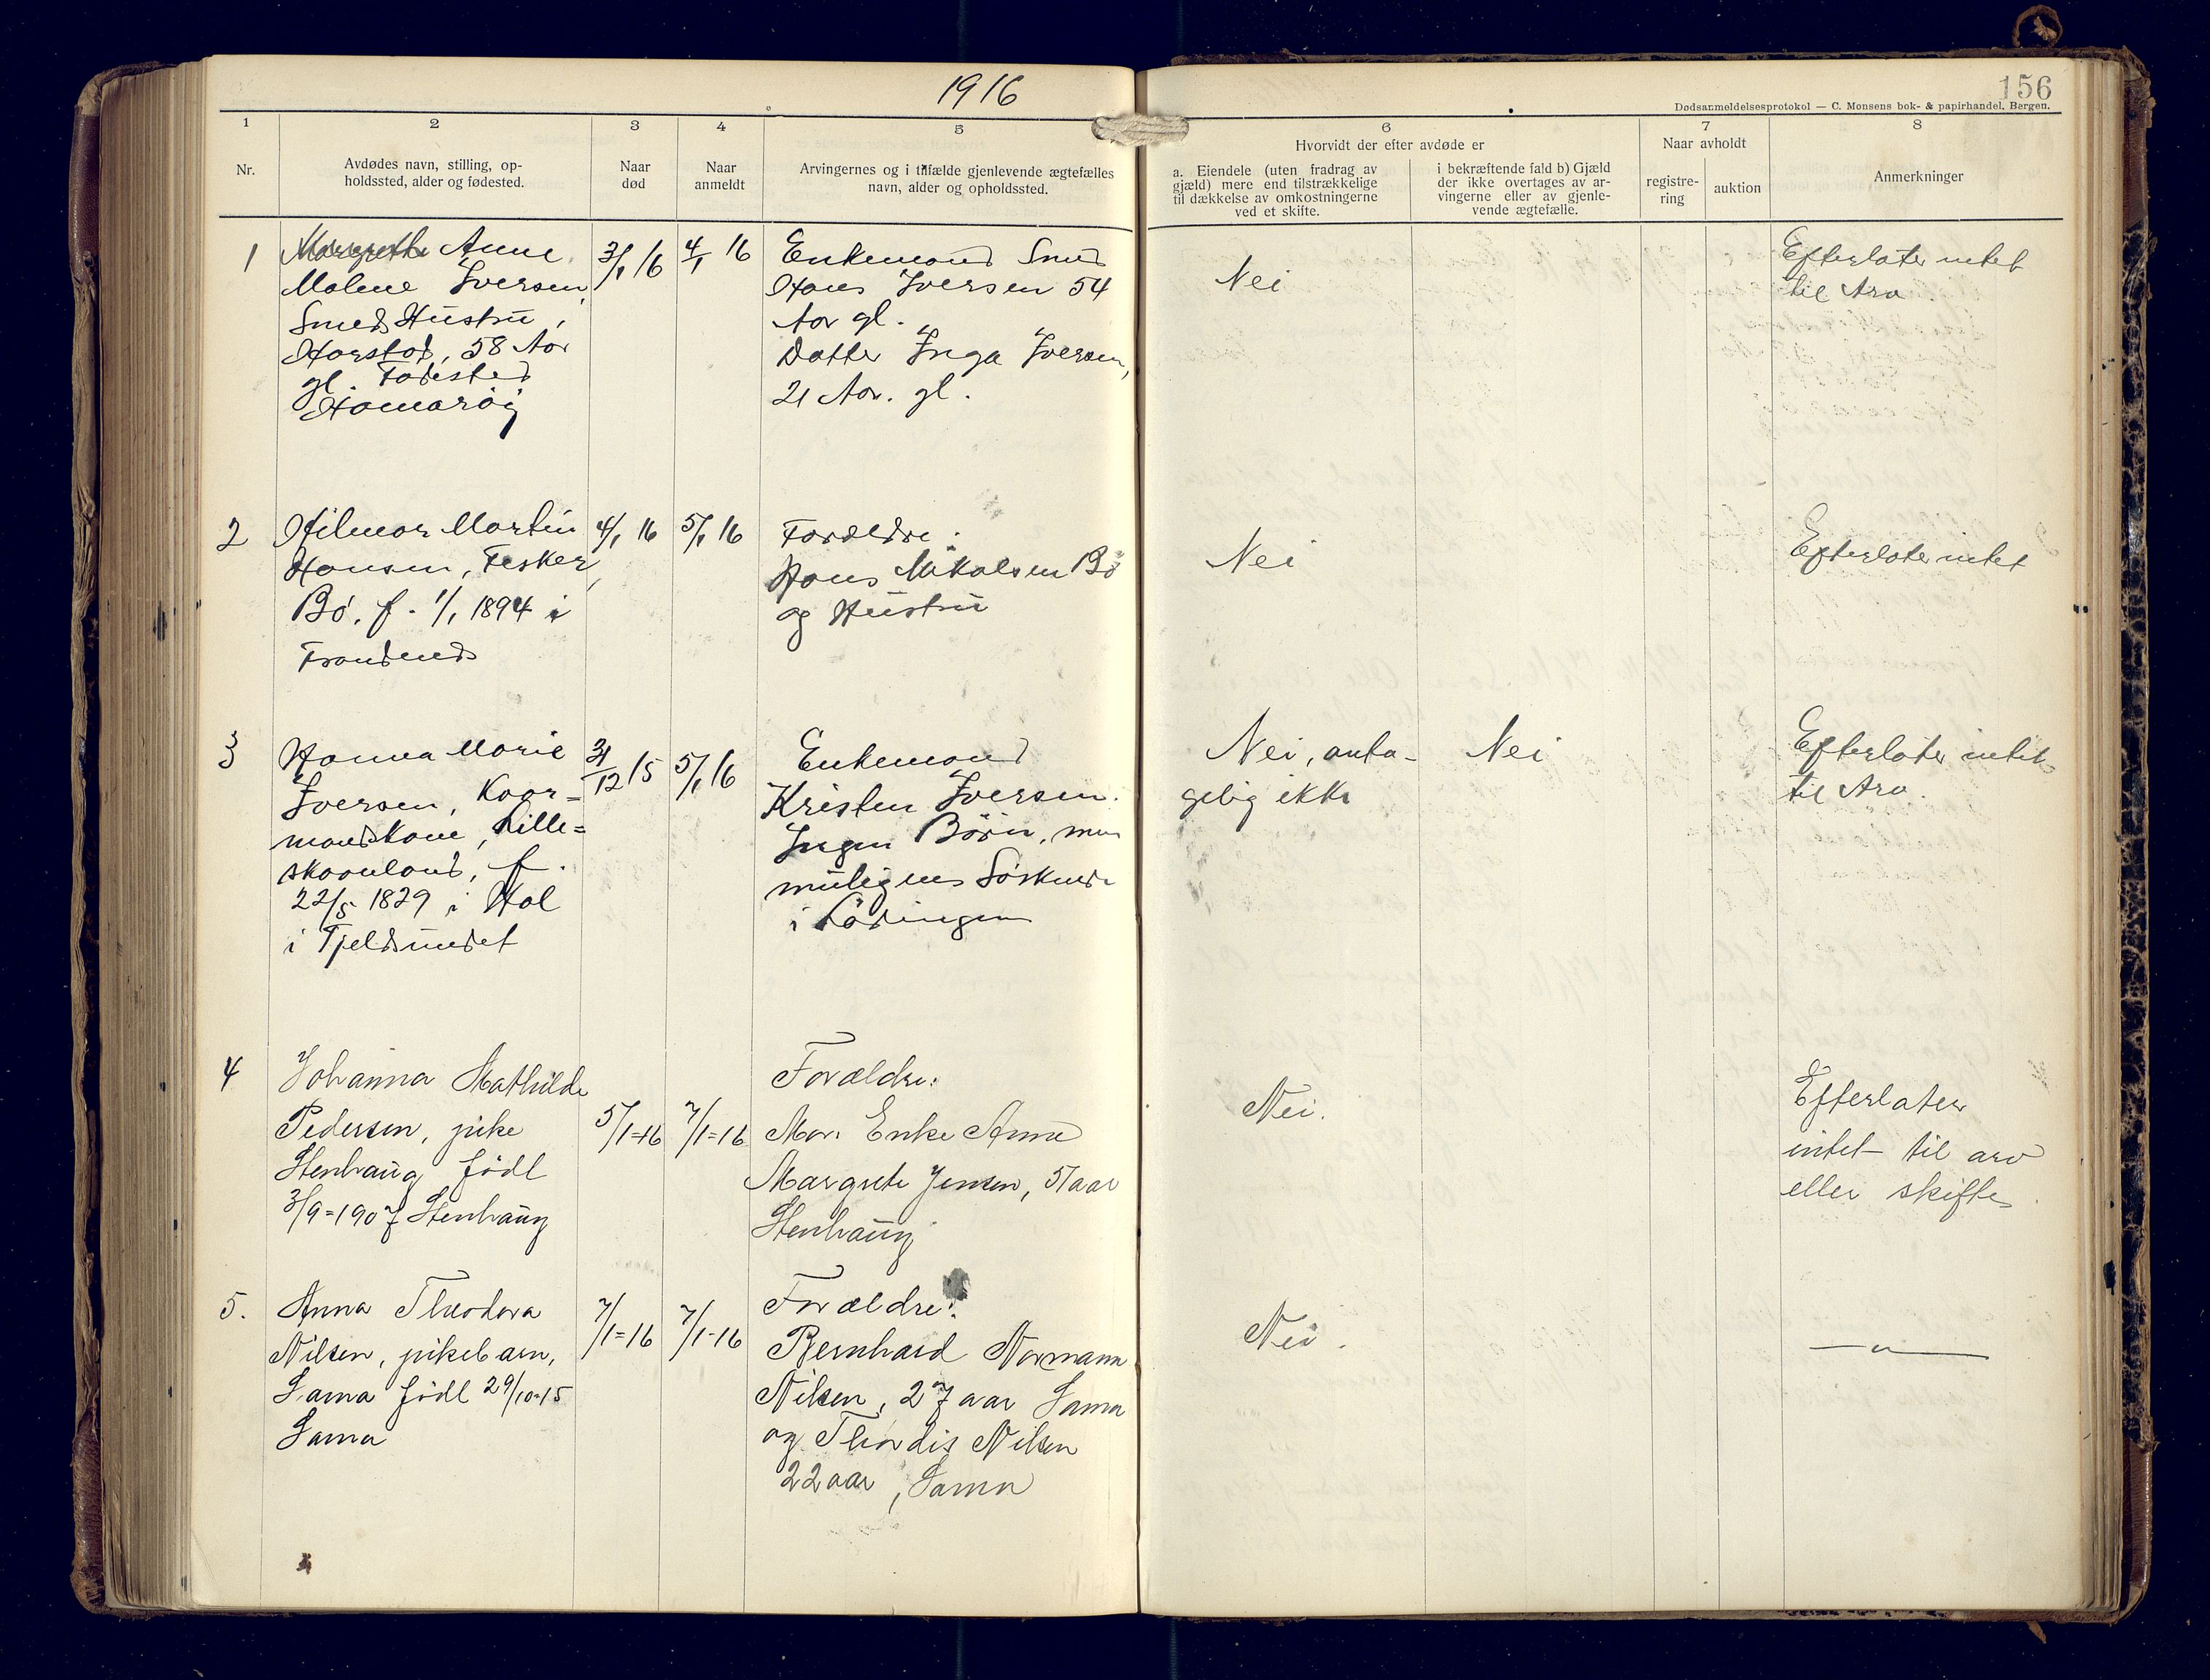 1916
156
Dødsanmeldelsesprotokol — C. Monsens bok- & papirhandel, Bergen.
1
2
3
4
5
6
7
8
Nr.
Avdødes navn, stilling, op-
holdssted, alder og fødested.
Naar
død
Naar
anmeldt
Arvingernes og i tilfælde gjenlevende ægtefælles
navn, alder og opholdssted.
Hvorvidt der efter avdøde er
a. Eiendele (uten fradrag av
gjæld) mere end tilstrækkelige
til dækkelse av omkostningerne
ved et skifte.
i bekræftende fald b) Gjæld
der ikke overtages av ar-
vingerne eller av gjenle-
vende ægtefælle.
Naar avholdt
registre-
ring
auktion
Anmerkninger
1
Margrethe Anne
Malene Iversen,
Smeds Hustru,
Harstad, 58 Aar
gl. Fødested
Hamarøy
3/1 16
4/1 16
Enkemand Smed
Hans Iversen 54
Aar gl.
Datter Inga Iversen,
21 Aar. gl.
Nei
Efterlater intet
til Arv.
2
Hilmar Martin
Hansen, Fisker,
Bø. f. 1/1 1894 i
Trondenes
4/1 16
5/1 16
Forældre:
Hans Mikalsen Bø
og Hustru
Nei
Efterlater intet
3
Hanna Marie
Iversen, Kaar=
mandskone, Lille=
skaanland, f.
22/5 1829 i Hol
i Tjeldsundet
31/12 15
5/1 16
Enkemand
Kristen Iversen.
Ingen Børn, men
muligens Søskende
i Lødingen
Nei, anta-
gelig ikke
Nei
Efterlater intet
til Arv.
4
Johanna Mathilde
Pedersen, pike
Stenhaug født
3/9=1907 Stenhaug
5/1=16
7/1=16
Forældre:
Mor: Enke Anne
Margrete Jensen, 51 aar
Stenhaug
Nei.
Efterlater
intet til arv
eller skifte.
5.
Anna Theodora
Nilsen, pikebarn,
Sama født 29/10=15
Sama
7/1=16
7/1=16
Forældre:
Bernhard Normann
Nilsen, 27 aar Sama
og Thordis Nilsen
22 aar, Sama
Nei.
—"—